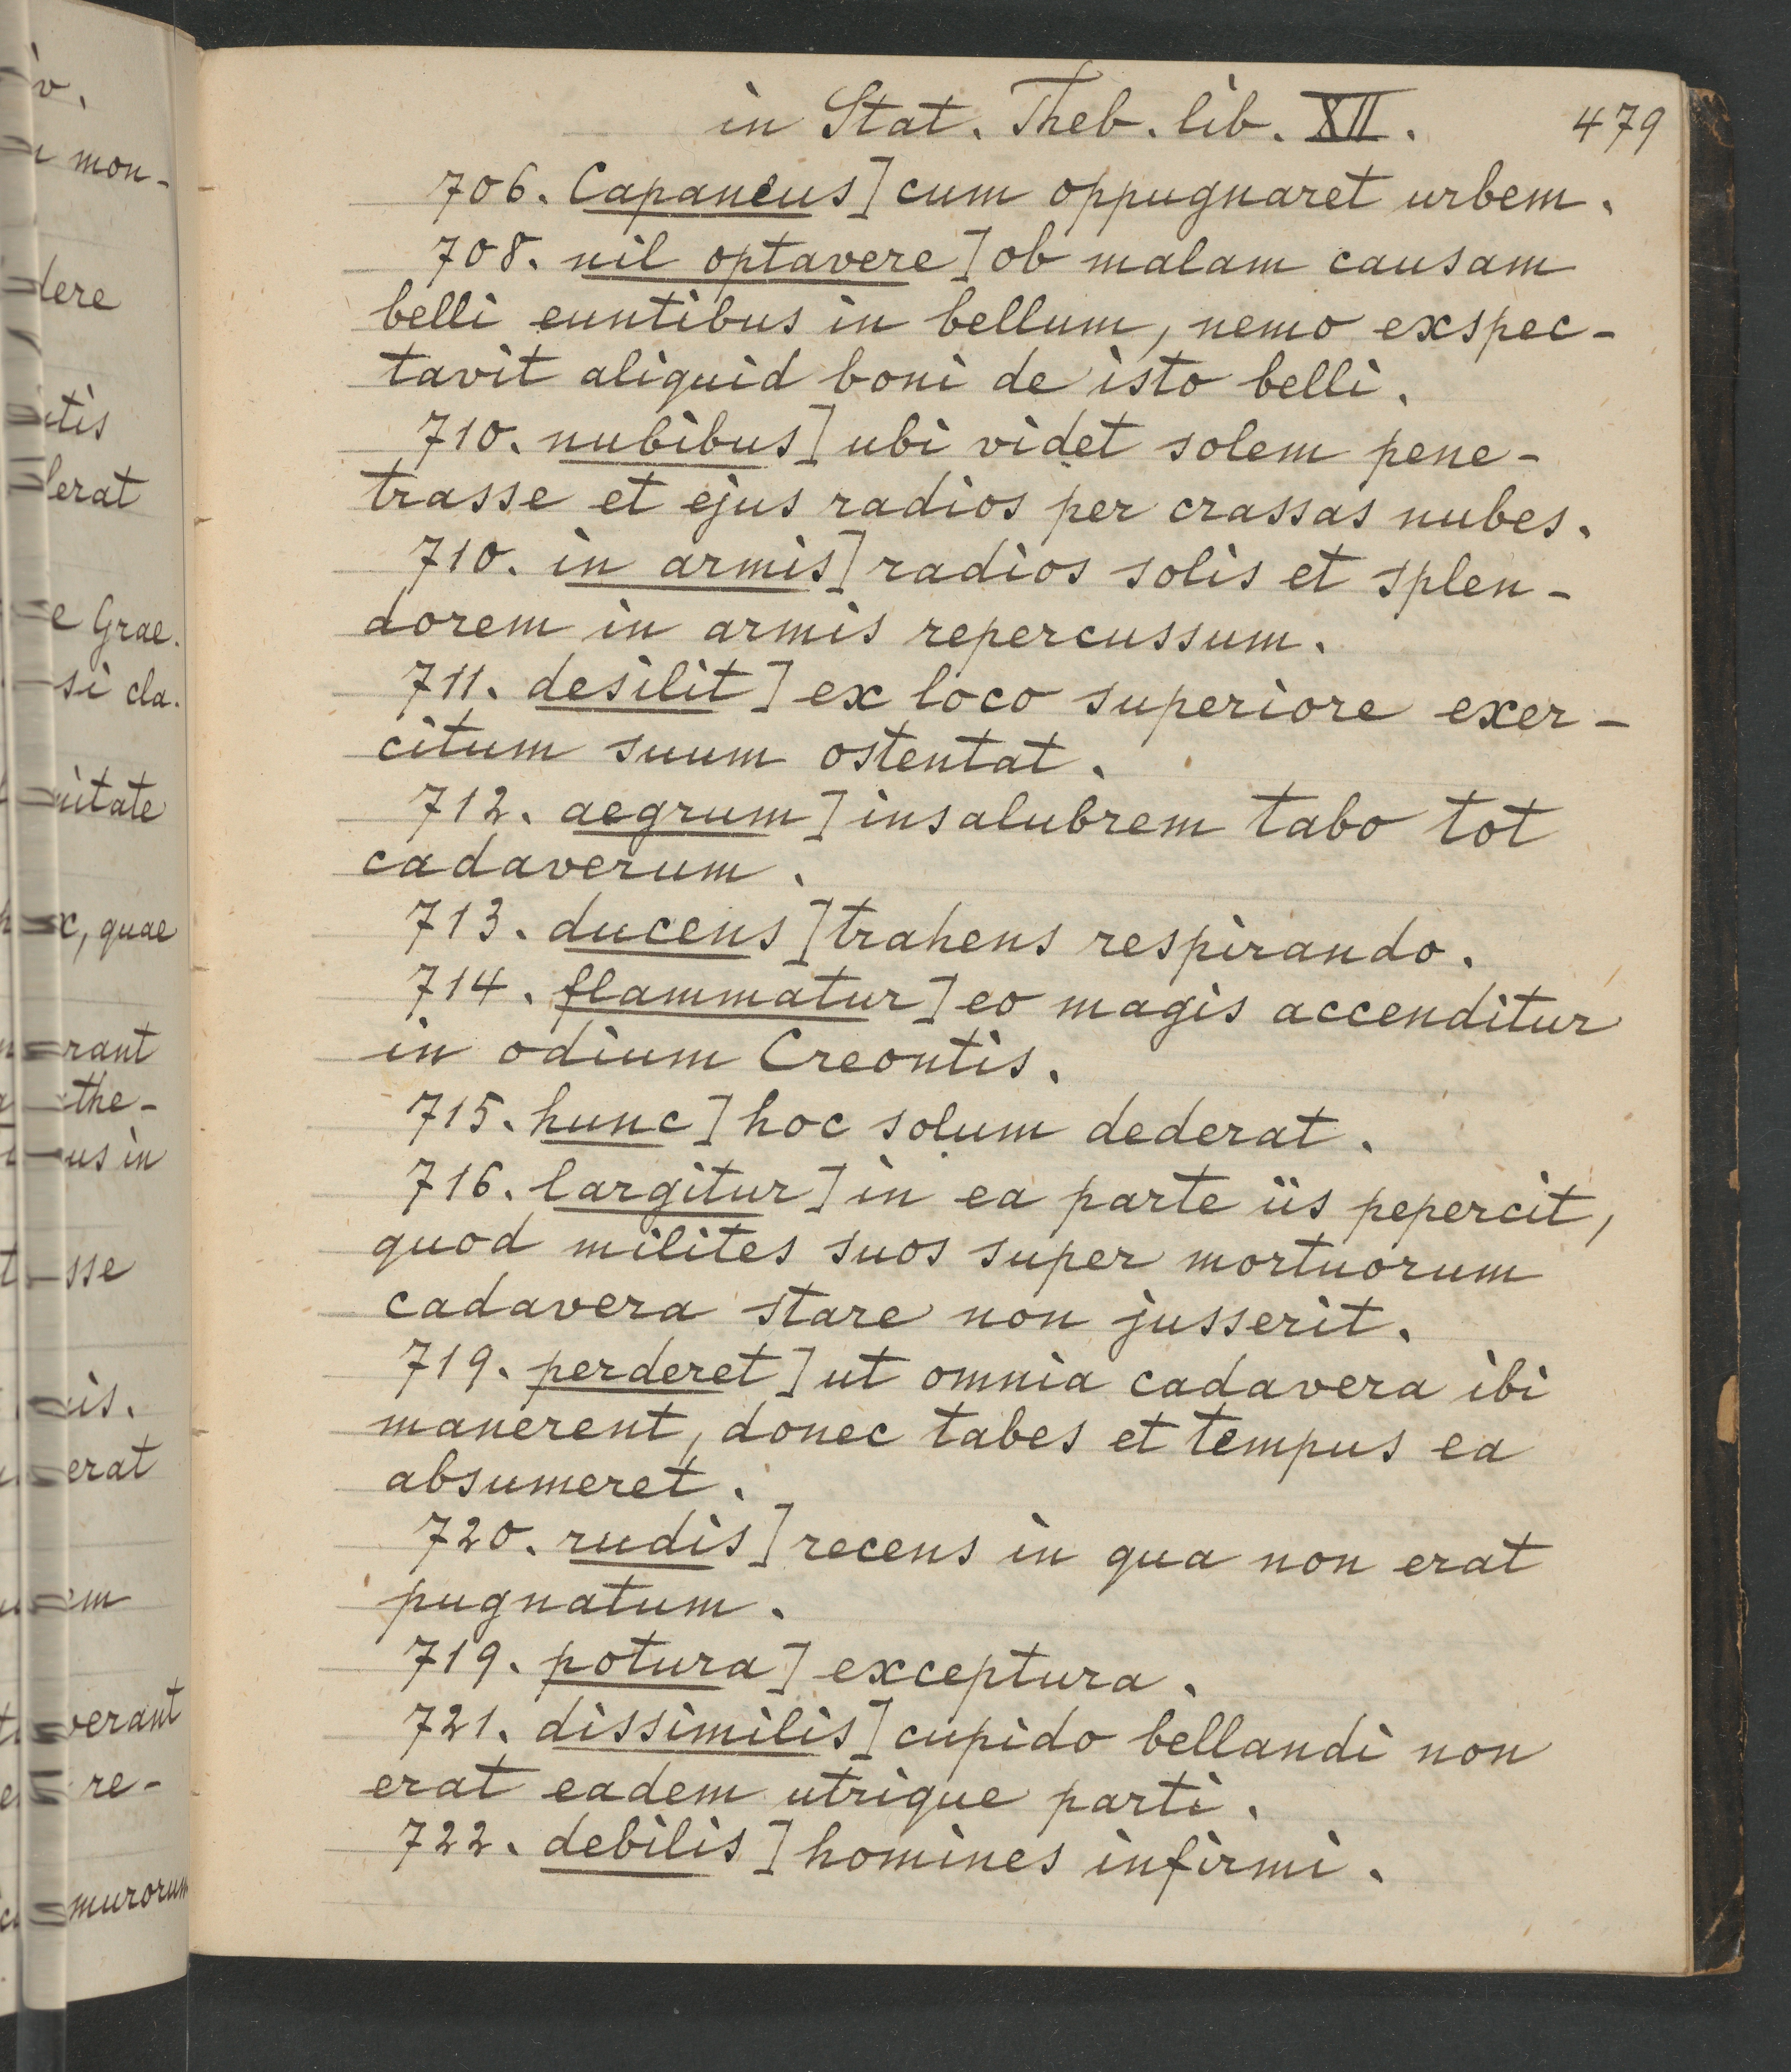 in Stat. Theb. lib. XII. 479
706. Capaneus] cum oppugnaret urbem.
708. nil optavere] ob malam causam
belli euntibus in bellum, nemo exspec-
tavit aliquid boni de isto belli.
710. nubibus] ubi videt solem pene-
trasse et ejus radios per crassas nubes.
710. in armis] radios solis et splen-
dorem in armis repercussum.
711. desilit] ex loco superiore exer-
citum suum ostentat.
712. aegrum] insalubrem tabo tot
cadaverum.
713. ducens] trahens respirando.
714. flammatur] eo magis accenditur
in odium Creontis.
715. hunc] hoc solum dederat.
716. largitur] in ea parte iis pepercit,
quod milites suos super mortuorum
cadavera stare non jusserit.
719. perderet] ut omnia cadavera ibi
manerent, donec tabes et tempus ea
absumeret.
720. rudis] recens in qua non erat
pugnatum.
719. potura] exceptura.
721. dissimilis] cupido bellandi non
erat eadem utrique parti.
722. debilis] homines infirmi.